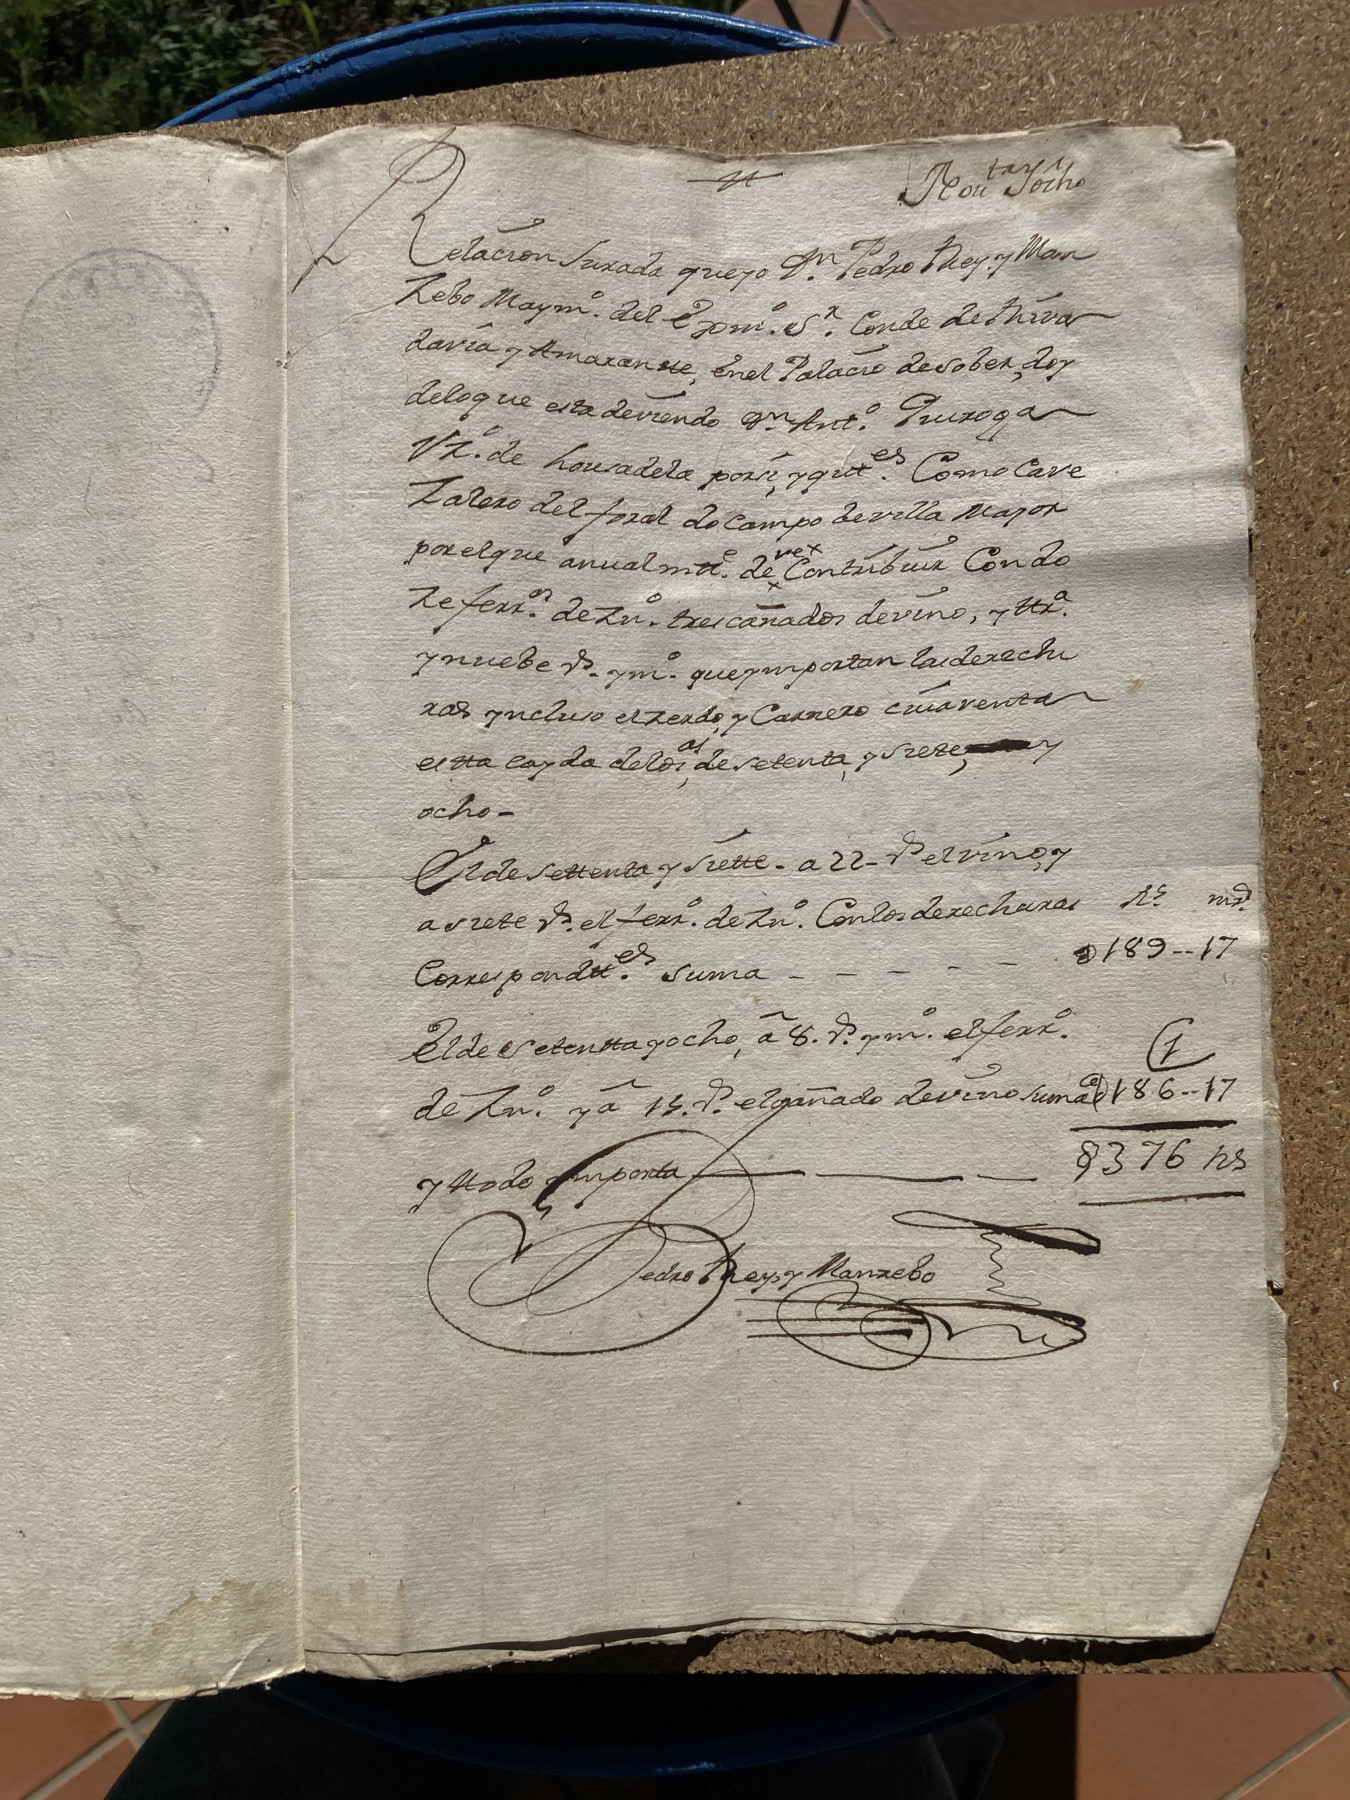 Nov.ta y ocho
Relacion Jurada que yo Dn. Pedro Rey y Man
Zebo Maymo. del Exmo. Sr. Conde de Riva
davia y Amarante, en el Palacio de Sober, doy
delo que esta deviendo Dn. Anto. Quiroga
Vzo. de Lousadela por si, y qttes. Como Cave
Zalero del foral do Campo de Villa Mayor
por el que anualmtte. deve Contribuir Con do
Ze ferros. de Zno. tres cañados de vino, y ttra.
y nuebe Rs. y mo. que ymportan las derechu
ras yncluso el zerdo, y Carnero cuia renta
estta cayda delos as, de setenta, y siete, y
ocho-
El de settenta y siette - a 22 - Rs el vino, y
a siete Rs. el ferro. de Zno. Con los derechuras Rs. mrs.
Correspondttes. suma - - - - - 189--17
El de setentta y ocho, a 8. Rs. y mo. el ferro.
1
de Zno. y a 15. Rs. el cañado de vino suma 186--17
y ttodo ymporta 8376 rs
Pedro Rey y Manzebo